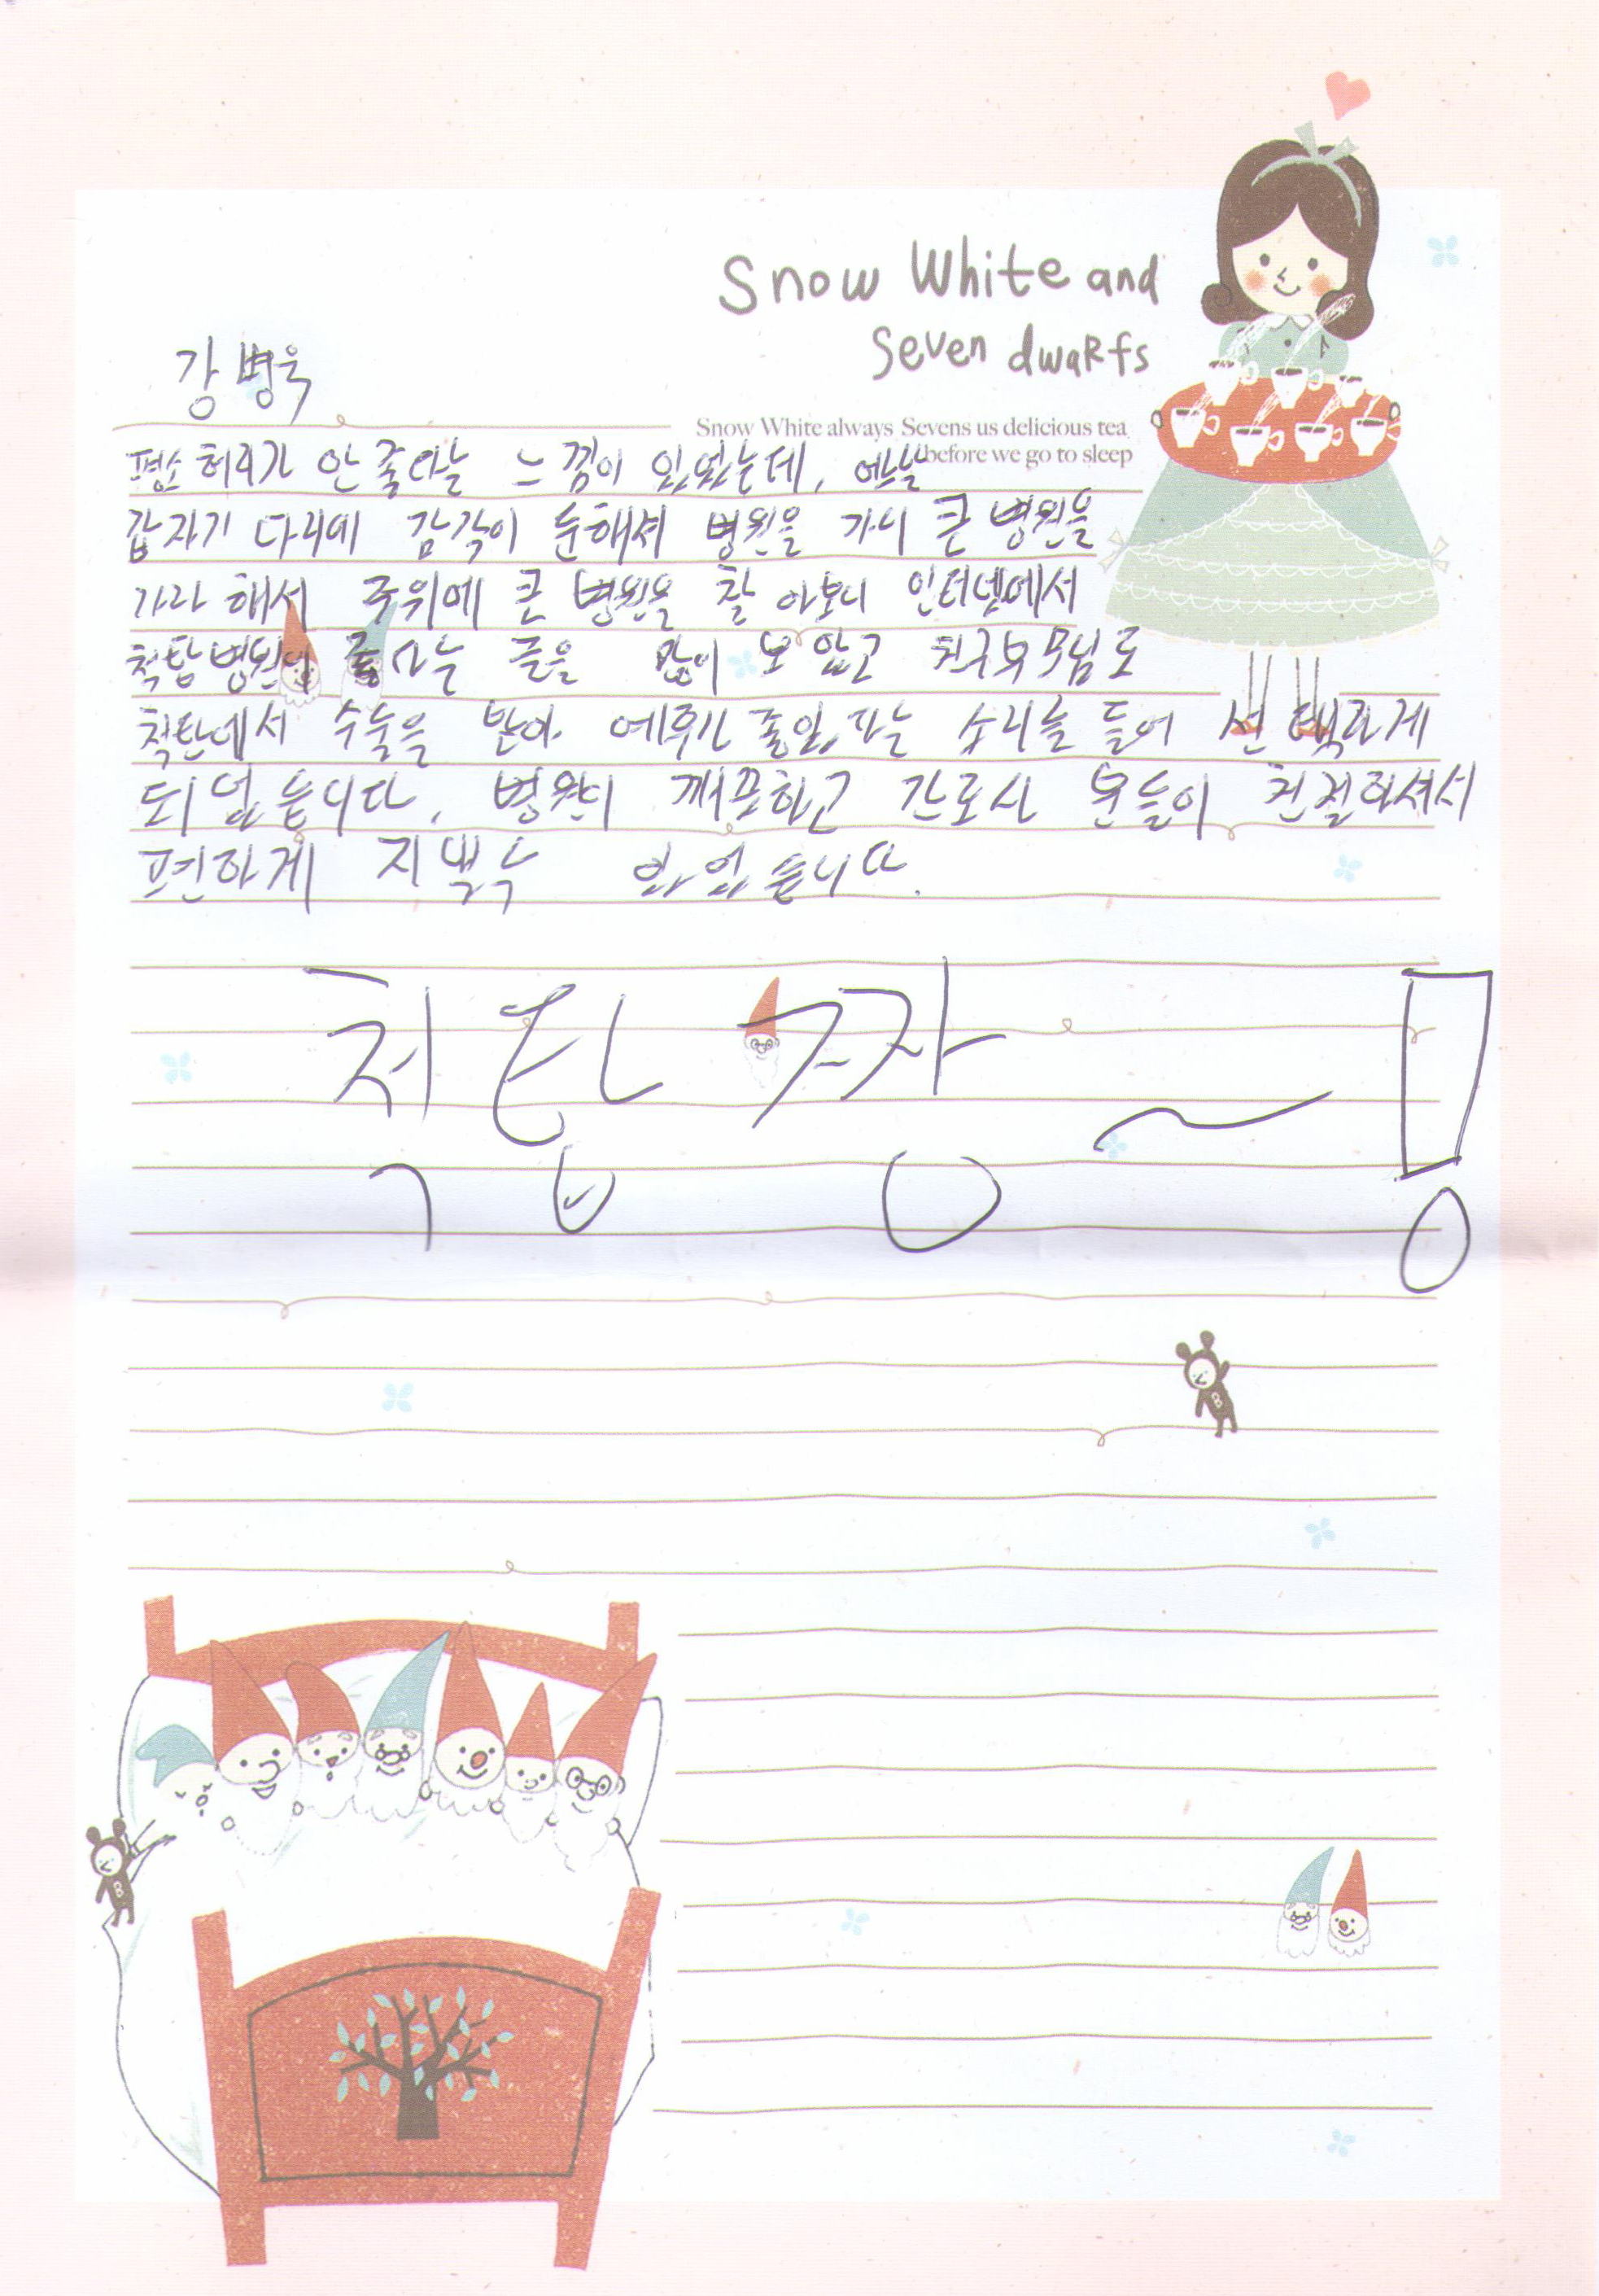 Snow White and
Seven dwaRfs
Snow White always Sevens us delicious tea
before we go to sleep
강병욱
평소 허리가 안 좋다는 느낌이 있었는데,
갑자기 다리에 감각이 둔해셔 병원을 가니 큰 병원을
가라 해서 주위에 큰 병원을 찰아보니 인터넷에서
척탑병원이 좋다는 글을 많이 보았고 친구부모님도
척탑에서 수술을 받아 예후가 좋았다는 소리를 듣어 선택하게
되었습니다. 병원이 깨끗하고 간호사 분들이 친절하셔서
편하게 지낼수 있었습니다.
척탑 짱~!